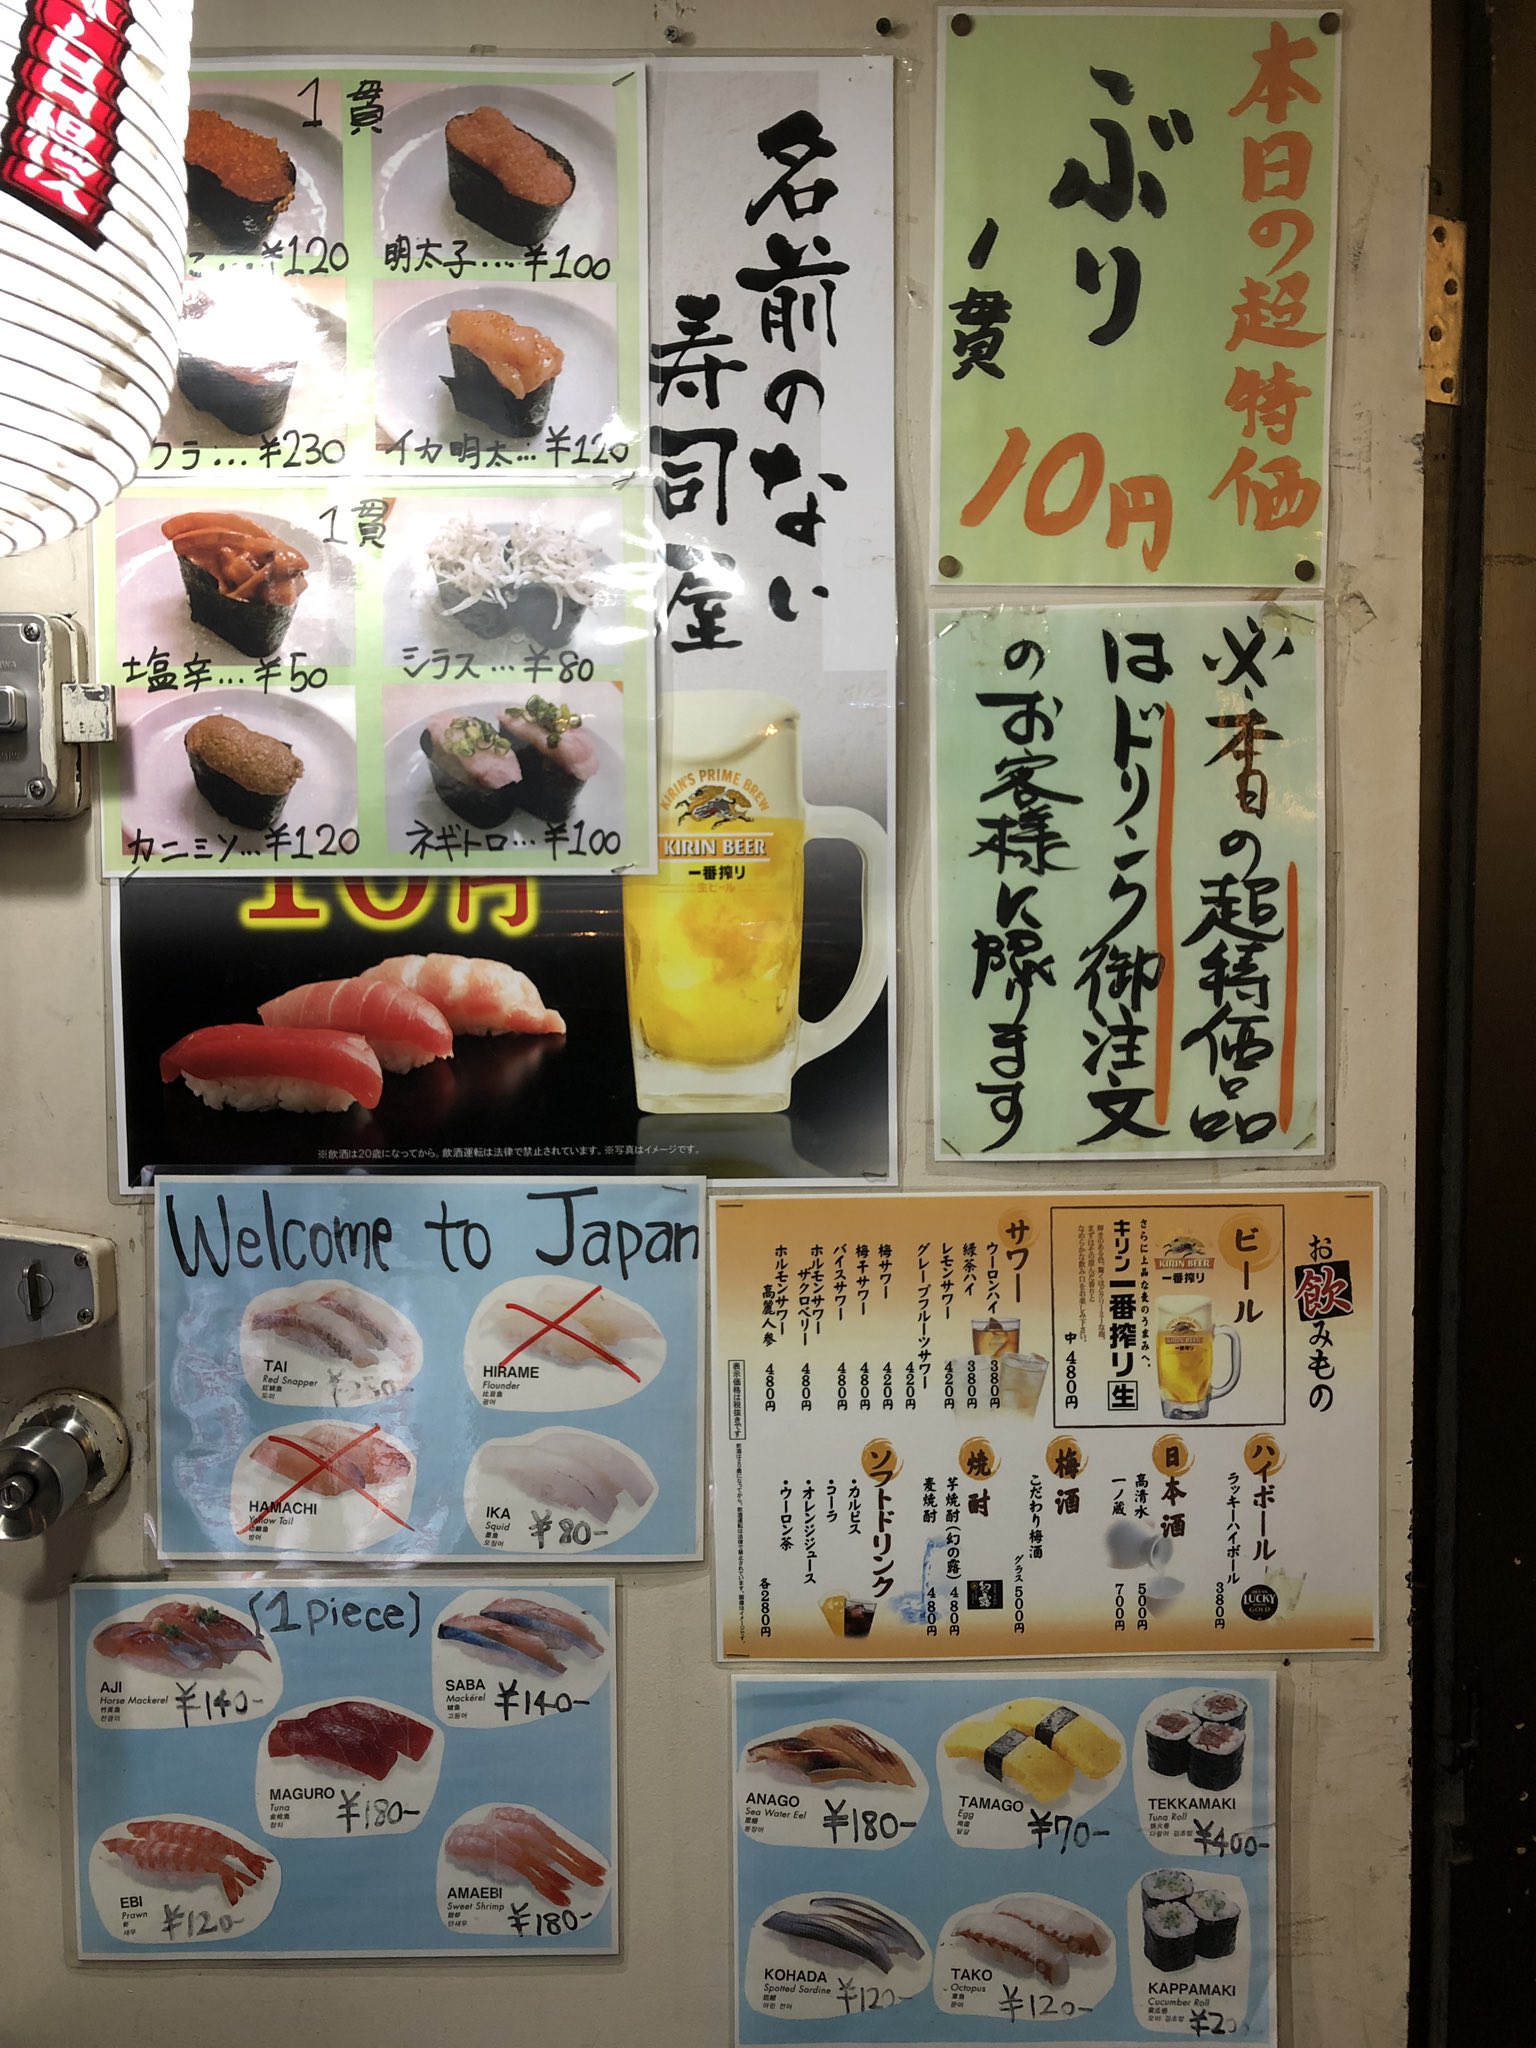 1貫
¥120
明太子....¥100
¥230
イカ明太...¥120
1貫
塩辛...¥50
シラス...¥80
カニミソ...¥120
ネギトロ...¥100
名前のない
寿司屋
KIRIN'S PRIME BREW
KIRIN BEER
一番搾り
生ビール
10円
※飲酒は20歳になってから。飲酒運転は法律で禁止されています。※写真はイメージです。
本日の超特価
ぶり
1貫
10円
必ず本日の超特価品
はドリンク御注文
のお客様に限ります
Welcome to Japan
TAI
Red Snapper
도미
HIRAME
Flounder
比目魚
광어
HAMACHI
Yellow Tail
방어
IKA
Squid
墨魚
오징어
¥80-
[1piece]
AJI
Horse Mackerel
竹筴魚
전갱이
¥140-
SABA
Mackerel
鯖魚
고등어
¥140-
MAGURO
Tuna
金枪魚
참치
¥180-
EBI
Prawn
虾
새우
¥120-
AMAEBI
Sweet Shrimp
甜虾
단새우
¥180-
お飲みもの
ビール
KIRIN BEER
一番搾り
さらに上品な麦のうまみへ。
キリン一番搾り 生
中 480円
サワー
ウーロンハイ 380円
緑茶ハイ 380円
レモンサワー 420円
グレープフルーツサワー 420円
梅サワー 420円
梅干サワー 480円
バイスサワー 480円
ホルモンサワー ザクロベリー 480円
ホルモンサワー 高麗人参 480円
表示価格は税抜きです
ハイボール
ラッキーハイボール 380円
LUCKY
GOLD
日本酒
高清水 500円
一ノ蔵 700円
梅酒
こだわり梅酒 グラス 500円
焼酎
芋焼酎(幻の露) 480円
麦焼酎 480円
ソフトドリンク
・カルピス
・コーラ
・オレンジジュース
・ウーロン茶
各280円
ANAGO
Sea Water Eel
붕장어
¥180-
TAMAGO
Egg
鸡蛋
달걀
¥70-
TEKKAMAKI
Tuna Roll
鉄火巻
다랑어 김초밥
¥400-
KOHADA
Spotted Sardine
어린 전어
¥120-
TAKO
Octopus
章魚
문어
¥120-
KAPPAMAKI
Cucumber Roll
黄瓜巻
오이 김초밥